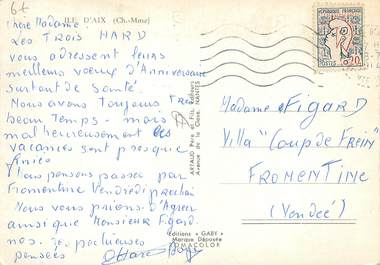 6f
ILE D'AIX (Ch.-Mme)
Chère Madame.
Les TROIS HARD
vous adressent leurs
meilleurs vœux d'Anniversaire
surtout de Santé.
Nous avons Toujours TRES
beau Temps - mais
malheureusement les
vacances sont presque
finies
Nous pensons passer par
Fromentine Vendredi prochain
Nous vous prions d'Agréer
ainsi que Monsieur Figard.
nos
pensées
ARTAUD Père et Fils, Editeurs
Avenue de la Close, NANTES
Editions « GABY »
Marque Déposée
SOMACOLOR
REPUBLIQUE FRANÇAISE
POSTES 0,20
Madame FIGARD
Villa "Coup de FREIN"
FROMENTINE
(Vendée)